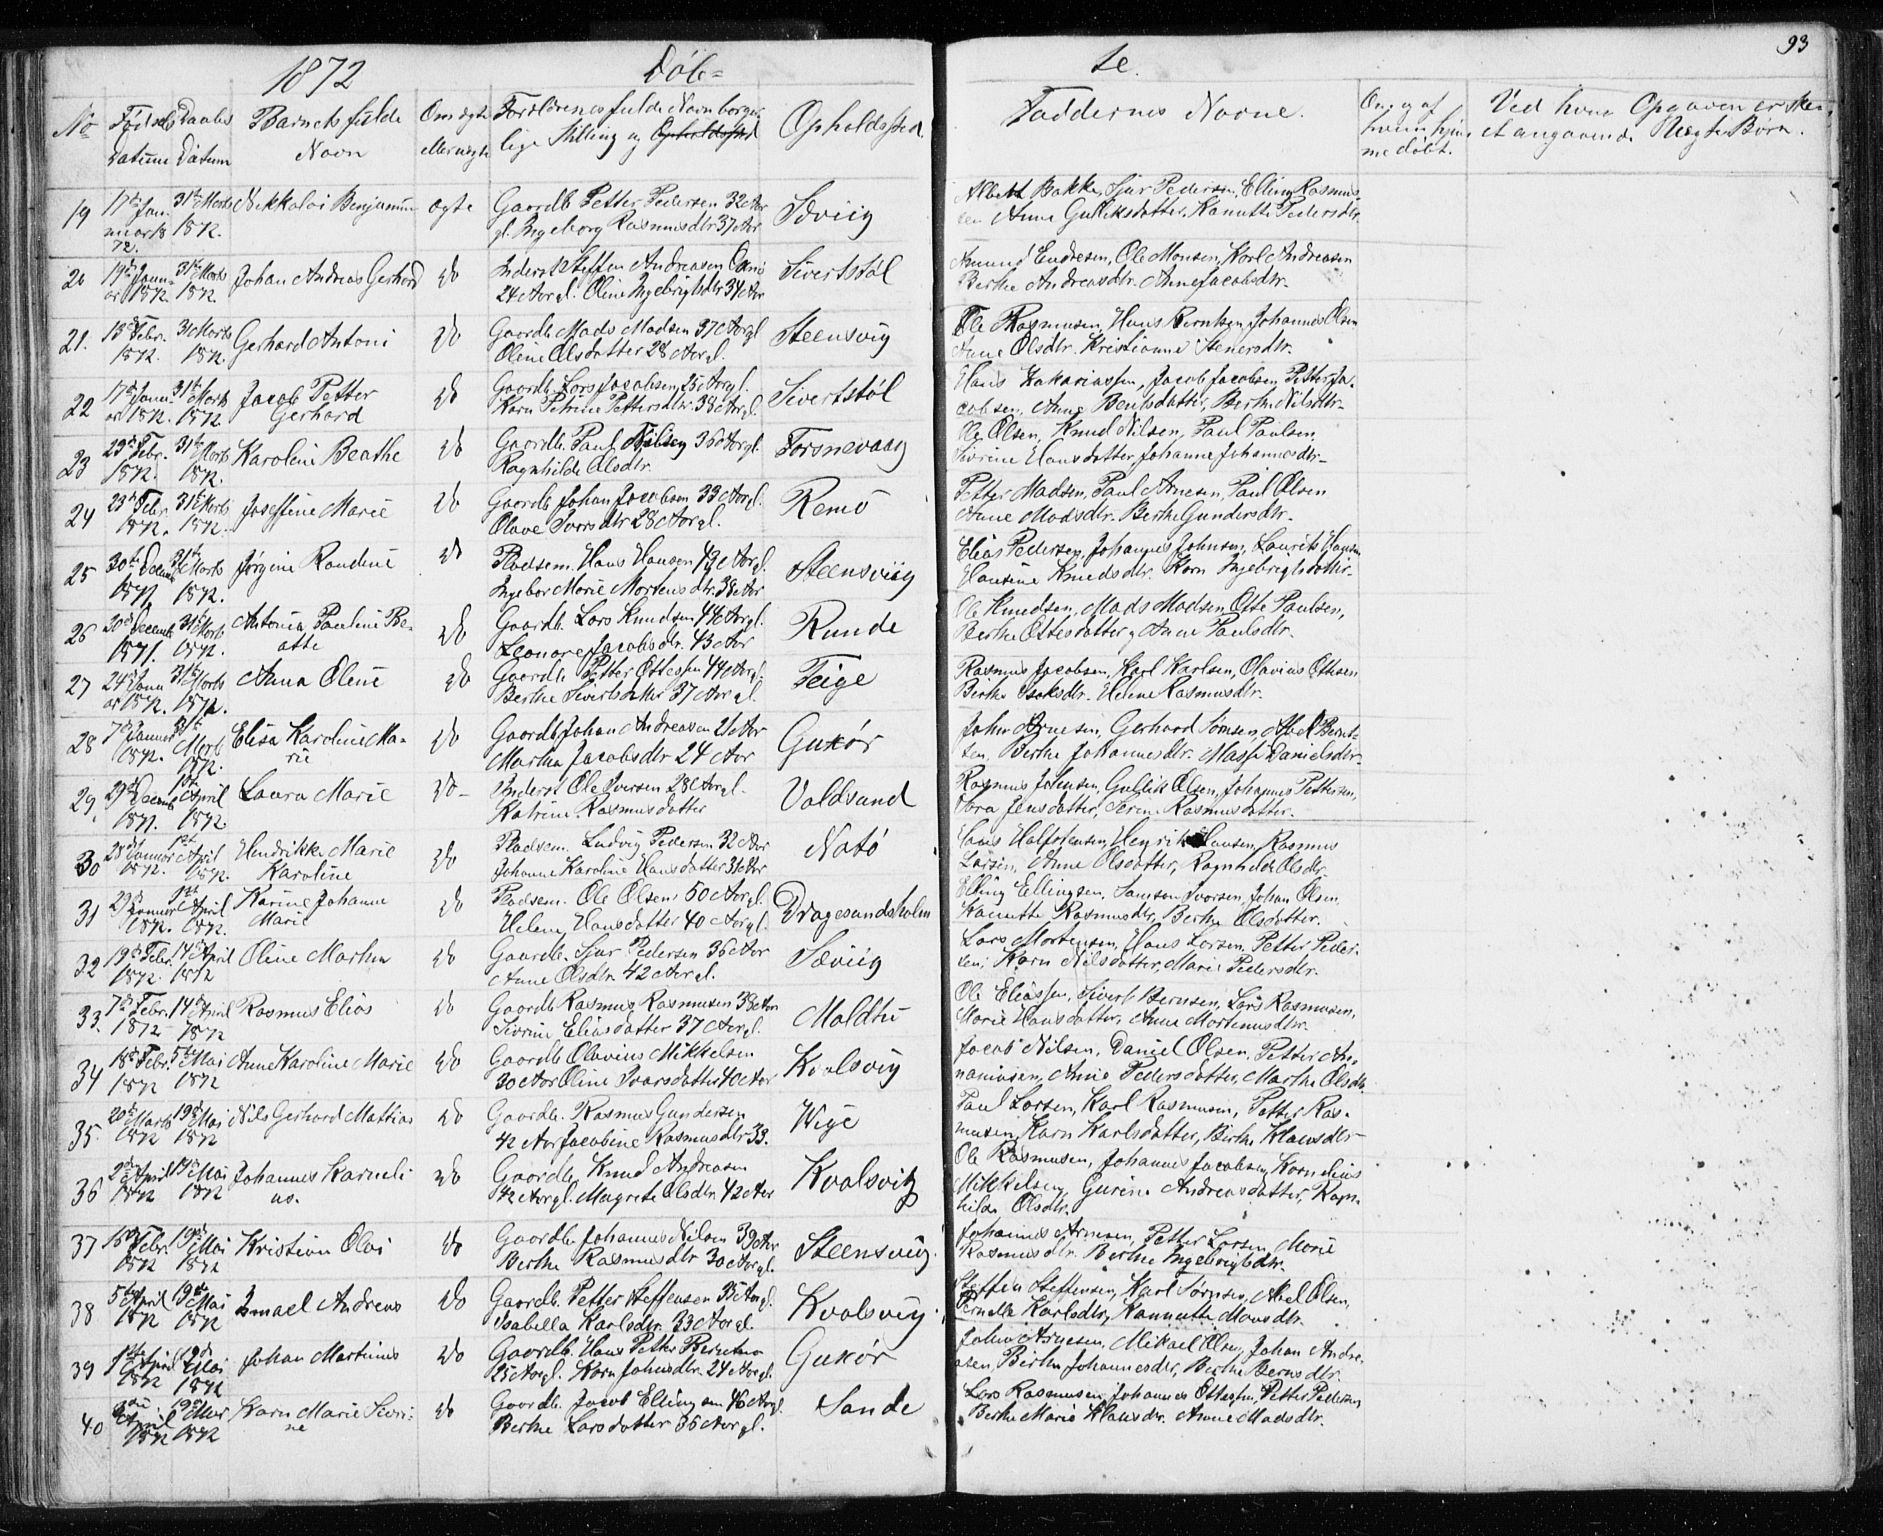 1872 Døb= te. 93
No Fødsels Datum Daabs Datum Barnets fulde Navn Om ægte eller uægte Forældrenes fulde Navn borger lige Stilling og Opholdssted Opholdssted Faddernes Navne. Om og af hvem hjem me døbt. Ved hvem Opgaven er ske et angaaende Uægte Børn.
19 17de Jan 72. 31te Marts 1872. Nikkolai Benjamin ægte Gaardb. Petter Pedersen 32 Aar gl. Ingeborg Rasmusdtr 37 Aar Sæviig
Albert Bakke, Sjur Pedersen, Elling Rasmus
sen Anne Gulliksdatter, Kanutte Pedersdtr
20 19de Janu ar 1872 31te Marts 1872. Johan Andreas Gerhard do Inderst Steffen Andreasen 24 Aar gl. Oline Ingebrigtsdtr 34 Aar Sivertstøl
Amund Endresen, Ole Monsen, Karl Andreasen
Berthe Andreasdtr. Anne Jacobsdtr.
21. 18de Febr. 1872. 31 Marts 1872. Gerhard Antoni do Gaardb. Mads Madsen 37 Aar gl Oline Olsdatter 28 Aar gl. Steensvig
Ole Rasmusen, Hans Berntsen, Johannes Olsen
Anne Olsdtr. Kristianne Stenersdtr.
22 17de Janu ar 1872. 31te Marts 1872 Jacob Petter Gerhard do Gaardb. Lars Jacobsen 25 Aar gl. Karn Petrine Pettersdtr 38 Aar gl. Sivertstøl
Hans Zakariassen, Jacob Jacobsen, Petter Ja.
cobsen, Anne Berntsdatter, Berthe Nilsdtr.
23 29de Febr. 1872. 31te Marts 1872. Karoline Beathe do Gaardb. Paul Nilsen 36 Aar gl. Ragnhilde Olsdtr. Torsnevaag
Ole Olsen, Knud Nilsen, Paul Paulsen
Sivrine Hansdatter, Johanne Johannesdtr.
24 23de Febr. 1872. 31te Marts 1872. Joseffine Marie do Gaardb Johan Jacobsen 33 Aar gl. Olave Ivarsdtr 28 Aar gl. Remø
Petter Madsen, Paul Arnesen, Paul Olsen
Anne Madsdtr. Berthe Gundersdtr.
25 30te Decemb 1871 31te Marts 1872. Jørgine Randine do Pladsem. Hans Hansen 43 Aar gl. Ingebor Marie Mortensdtr. 38 Aar Steensviig
Elias Pedersen, Johannes Johnsen, Laurits Hansen
Hansine Knudsdtr. Karn Ingebrigtsdatter.
26 20de Decemb 1871. 31te Marts 1872. Antonia Pauline Be- atte do Gaardb. Lars Knudsen 44 Aar gl. Leonore Jacobsdtr. 43 Aar Runde
Ole Knudsen, Mads Madsen Otte Paulsen,
Berthe Ottesdatter, Anne Paulsdtr.
27 24de Janu ar 1872. 31te Marts 1872. Anna Oline do Gaardb. Petter Ottesen 44 Aar gl. Berthe Sivertsdtr 37 Aar gl. Teige
Rasmus Jacobsen, Karl Karlsen, Olavius Ottesen
Berthe Isaksdtr. Helene Rasmusdtr.
28 7de Januar 1872. 31te Marts 1872. Elisa Karoline Ma- rie do Gaardb Johan Andreasen 21 Aar Martha Jacobsdtr 24 Aar Gukør
John Arnesen, Gerhard Sømsen, Abel Bernt-
sen, Berthe Johannesdtr. Masse Danielsdtr.
29. 29de Decemb 1871. 1ste April 1872. Laura Marie do Inderst Ole Iversen 28 Aar gl. Katrine Rasmusdatter Voldsund
Rasmus Johnsen, Gullik Olsen, Johannes Pettersen,
Thora Jensdatter, Serine Rasmusdatter.
30 28de Januar 1872. 1ste April 1872. Hendrikke Marie Karoline do Pladsem. Ludvig Pedersen 32 Aar Johanne Karoline Hansdatter 31 Aar Notø
Hans Halfstensen, Henrik Hansen, Rasmus
Larsen, Anne Olsdatter, Ragnhilde Olsdtr.
31 29de Januar 1872. 1ste April 1872. Karine Johanne Marie do Pladsem. Ole Olsen 50 Aar gl. Helene Hansdatter 40 Aar gl. Dragesundsholm
Elling Ellingsen, Samson Ivarsen, Johan Olsen.
Kanutte Rasmusdtr, Berthe Olsdatter.
32 19de Febr. 1872. 14de April 1872 Oline Marthea do Gaardb. Sjur Pedersen 36 Aar Anne Olsdtr. 42 Aar gl. Sæviig
Lars Mortensen, Hans Larsen, Petter Peder-
sen, Karn Nilsdatter, Marie Pedersdtr.
33. 7de Febr. 1872 14de April 1872 Rasmus Elias do Gaardb Rasmus Rasmusen 38 Aar Sivrine Eliasdatter 37 Aar gl. Moldtu
Ole Eliassen, Sivert Bernsen, Lars Rasmusen,
Marie Hansdatter, Anne Mortensdtr.
34 18de Febr. 1872 5te Mai 1872 Anne Karoline Marie do Gaardb Olavius Mikkelsen 30 Aar Oline Ivarsdatter 40 Aar Kvalsvig
Jacob Nilsen, Daniel Olsen, Petter An-
naniasen, Anne Pedersdatter, Marthe Olsdtr.
35. 20de Marts 1872 19de Mai 1872 Nils Gerhard Mathias do Gaardb. Rasmus Gundersen 42 Aar Jacobine Rasmusdtr 33. Wige
Paul Larsen, Karl Rasmusen, Petter Ras-
musen, Karn Karlsdatter, Berthe Klausdtr-
36 2de April 1872 19de Mai 1872 Johannes Karneli us. do Gaardb. Knud Andreasen 42 Aar gl. Magrete Olsdtr. 42 Aar Kvalsvig
Ole Rasmusen, Johannes Jacobsen, Kornelius
Mikkelsen, Gurine Andreasdatter, Ragn-
hilde Olsdtr.
37 16de Febr. 1872 19de Mai 1872 Kristian Olai do Gaardb. Johannes Nilsen 39 Aar Berthe Rasmusdtr 30 Aar gl. Steensviig.
Johannes Arnesen, Petter Larsen, Marie
Rasmusdtr. Berthe Ingebrigtsdtr.
38 5te April 1872 19de Mai 1872 Ismael Andreas do Gaardb. Petter Steffensen 35 Aar gl. Isabella Karlsdtr. 33 Aar gl. Kvalsvig
Steffen Steffensen, Karl Sørnsen, Abel Olsen,
Pernelle Karlsdtr, Kannutte Monsdtr.
39 1ste April 1872 19de Mai 1872 Johan Martinus do Gaardb. Hans Petter Berntsen 25 Aar gl. Karn Johnsdtr. 24 Aar gl. Gukør
John Arnesen, Mikael Olsen, Johan Andre-
asen, Berthe Johannesdtr, Berthe Berntsdtr.
40 April 1872 19de Mai 1872 Karn Marie Sivri- ne do Gaardb. Jacob Ellingsen 46 Aar gl. Berthe Larsdatter 36 Aar gl. Sande
Lars Rasmusen, Johannes Ottesen, Petter Pedersen
Berthe Marie Klausdtr. Anne Madsdtr.